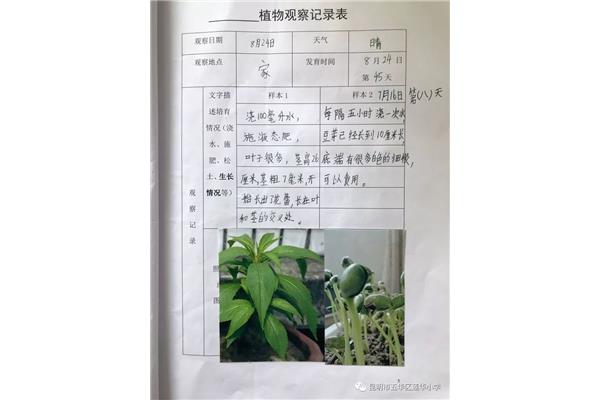 植物观察记录表
观察日期 8月24日 天气 晴
观察地点 家 发育时间 8月24日
第45天
文字描述培育情况(浇水、施肥、松土、生长情况等)
样本1
浇100毫升水,
施液态肥,
叶子很多,茎高26
厘米,茎粗7毫米,开
始长出了花蕾,长在叶
和茎的交叉处。
样本2 7月16日 第(八)天
每隔五小时浇一次水,
豆芽已经长到10厘米长,
底端有很多白色的细根,
可以食用。
观察记录
昆明市五华区莲华小学